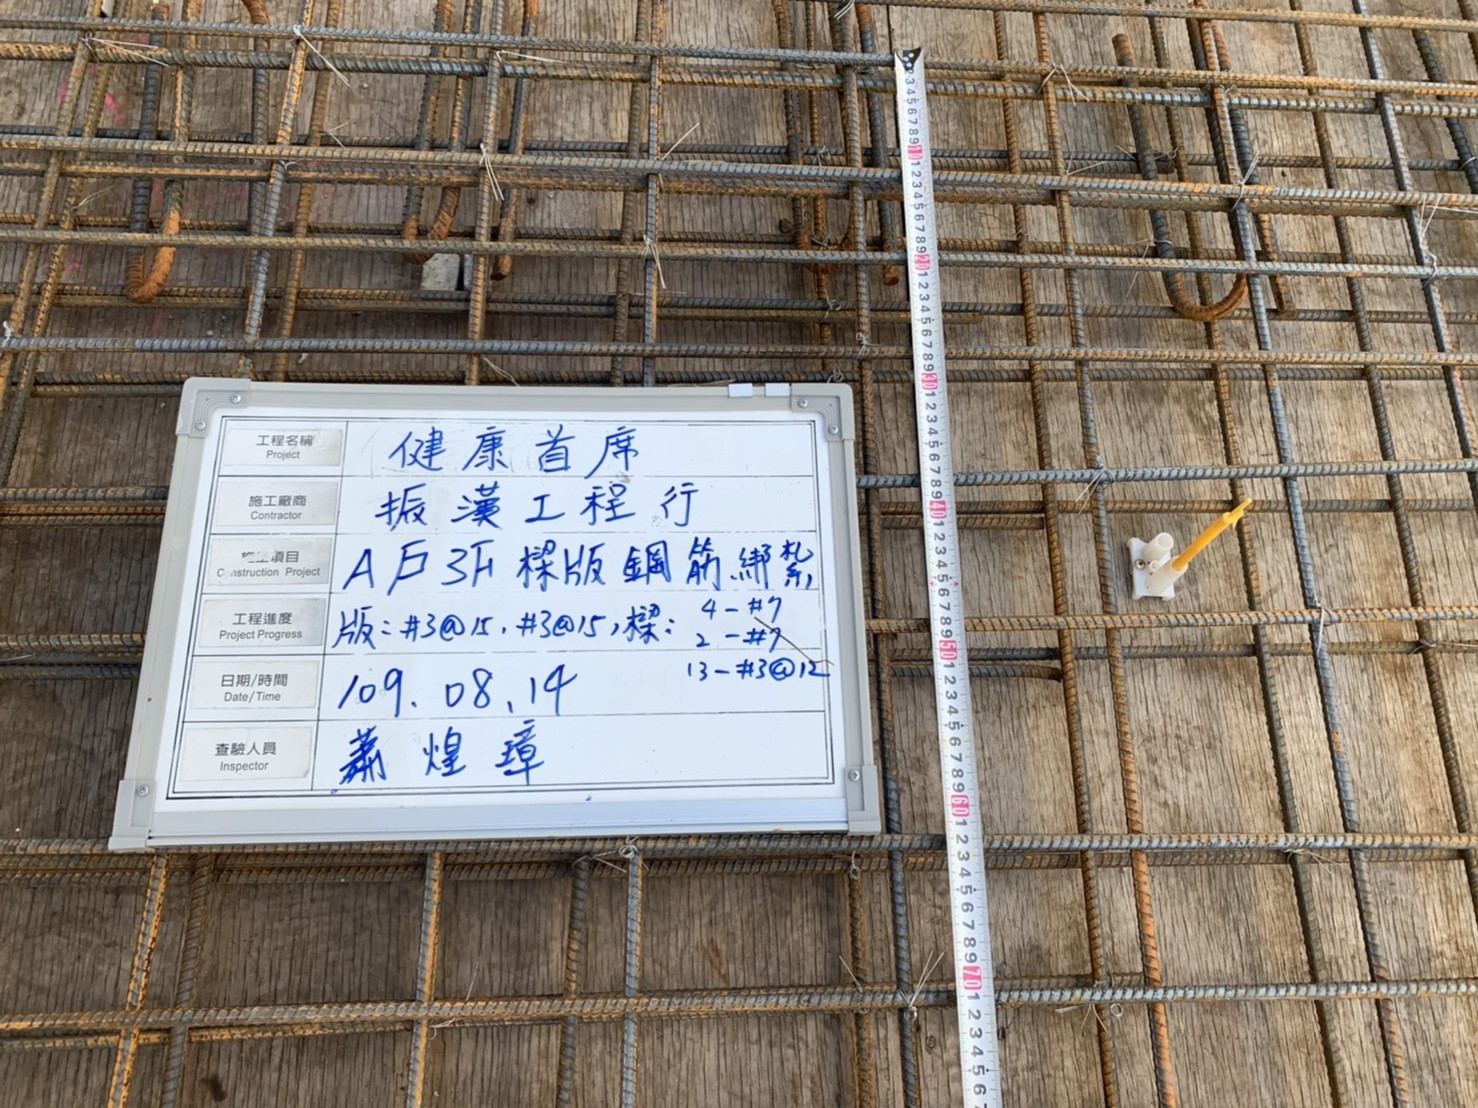 工程名稱 健康首席
Project
施工廠商 振漢工程行
Contractor
施工項目 A戶3F樑版鋼筋綁紮
Construction Project
工程進度 版:#3@15,#3@15,樑: 4-#7
Project Progress 2-#7
13-#3@12
日期/時間 109.08.14
Date/Time
查驗人員 蕭煌璋
Inspector
23456789
10
123456789
20
123456789
30
123456789
40
123456789
50
123456789
60
123456789
70
123456